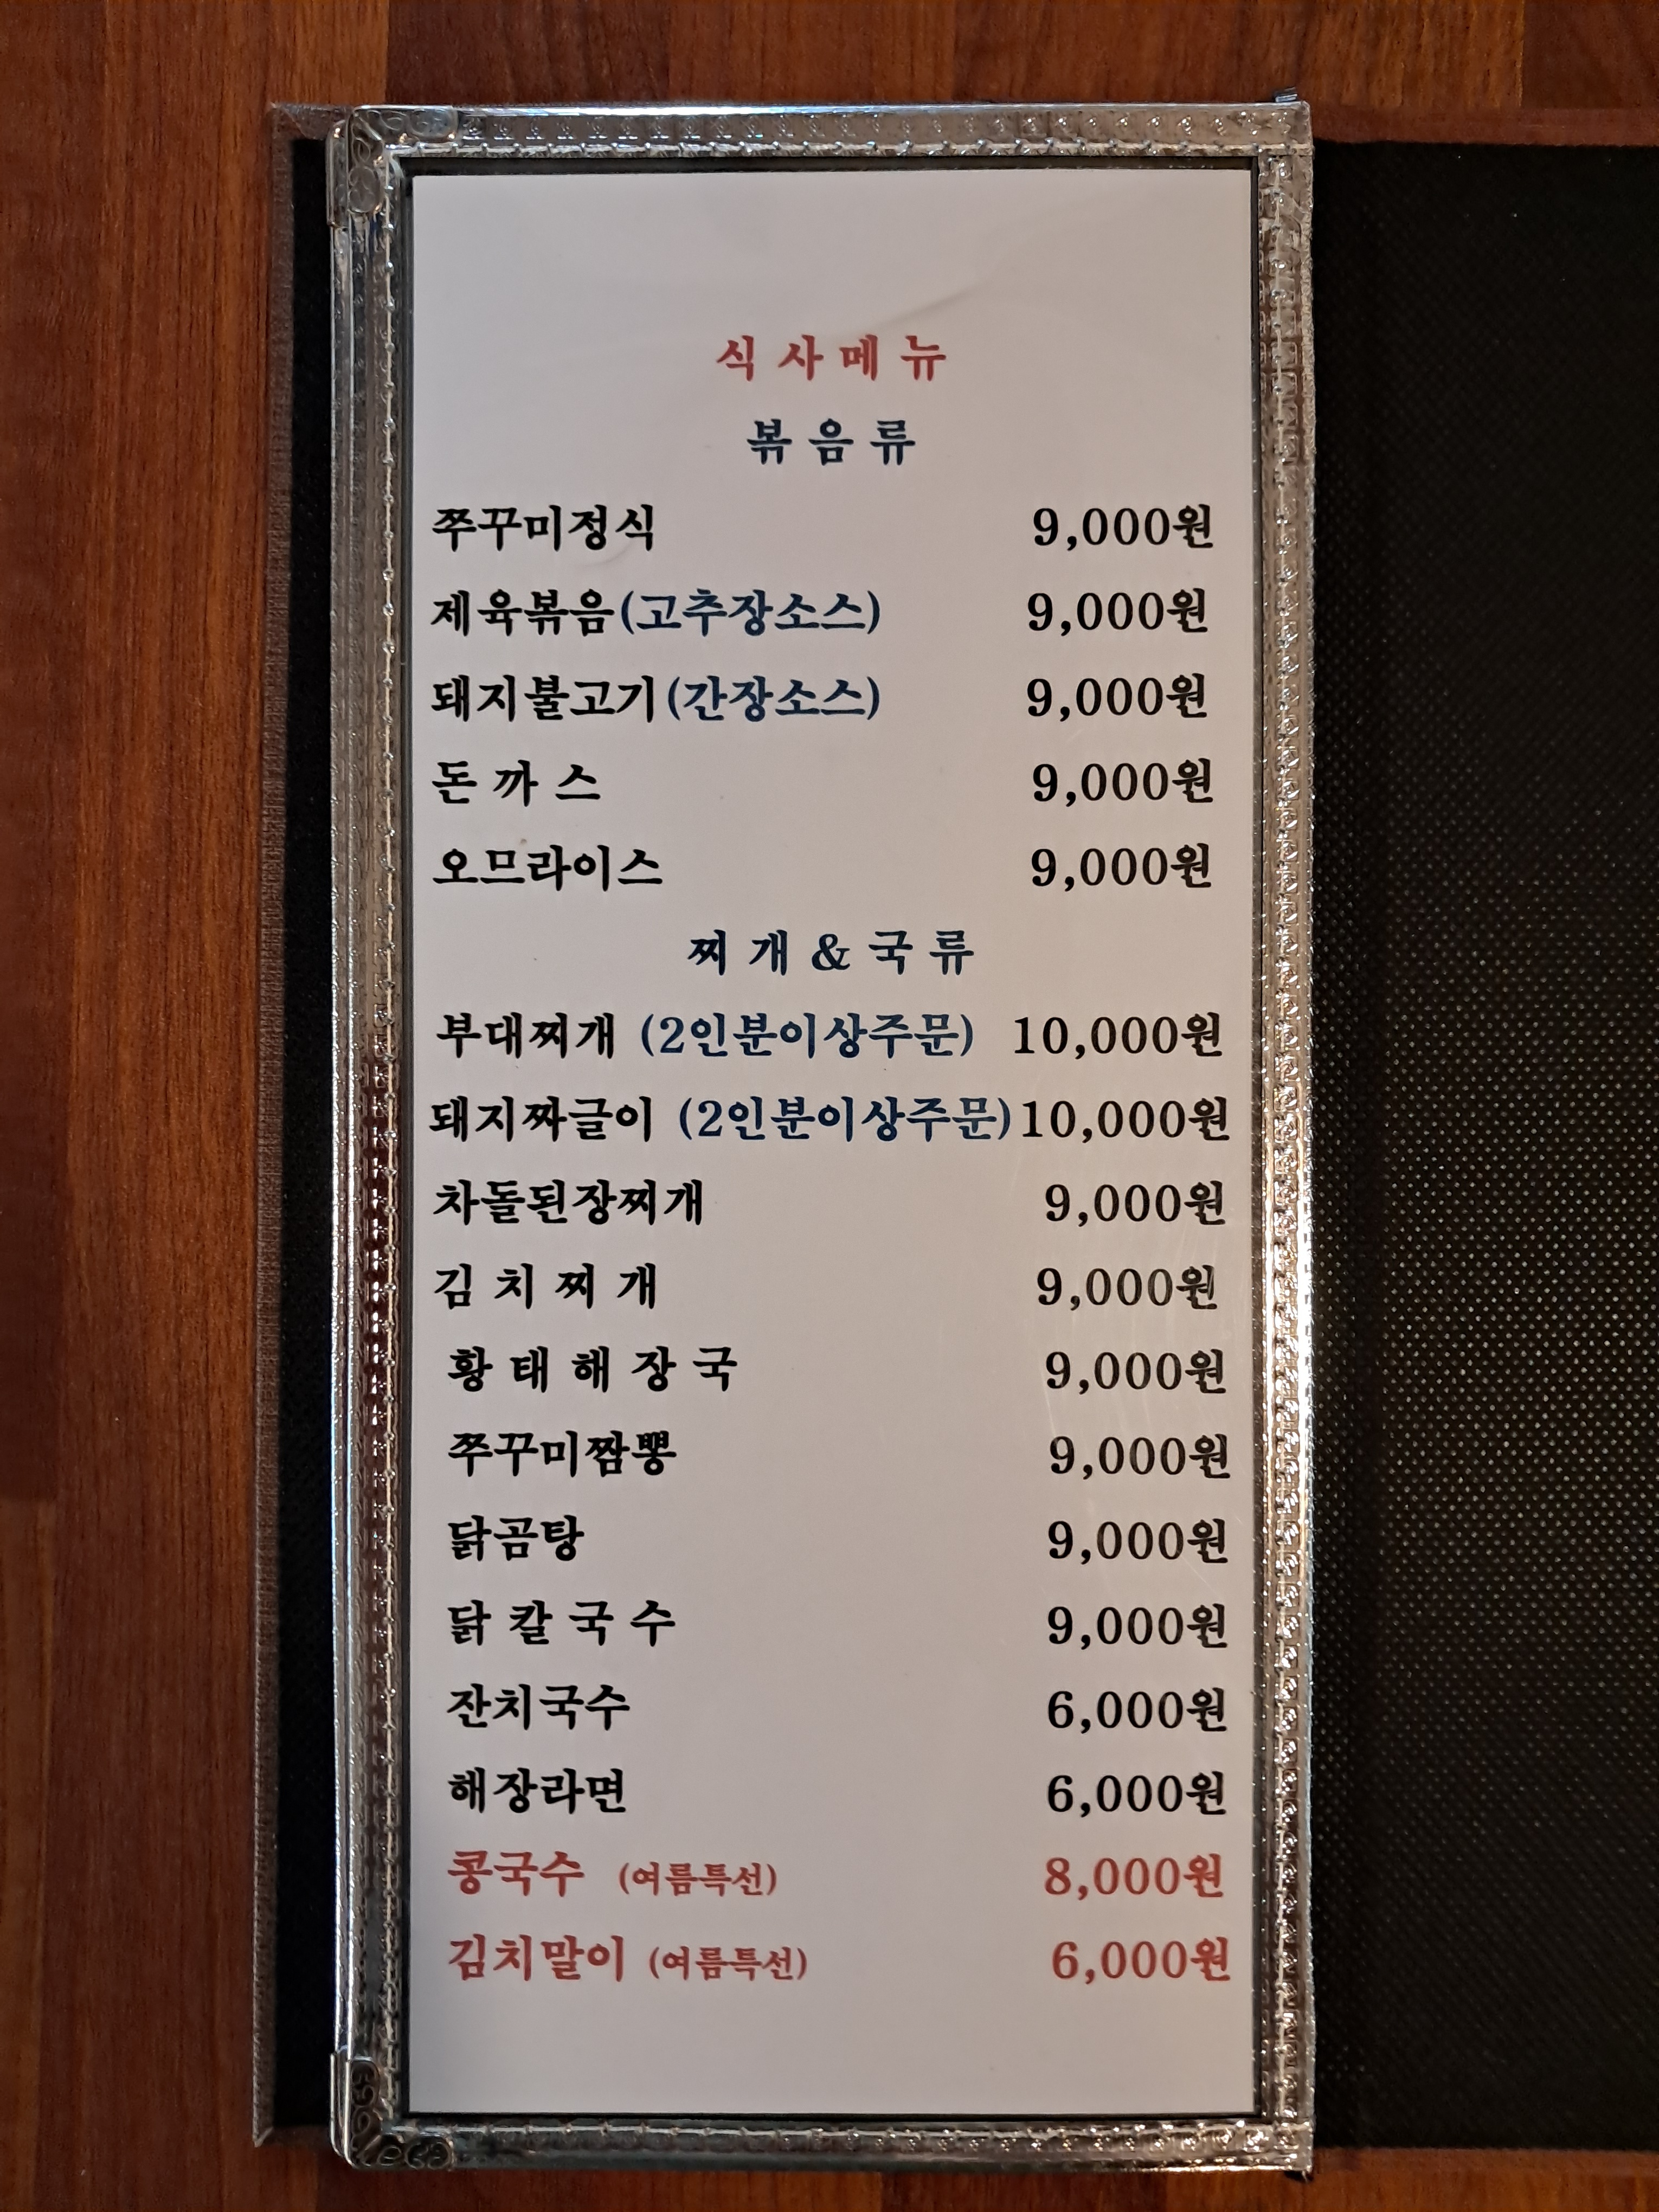 식 사 메 뉴
볶 음 류
쭈꾸미정식 9,000원
제육볶음(고추장소스) 9,000원
돼지불고기(간장소스) 9,000원
돈 까 스 9,000원
오므라이스 9,000원
찌 개 & 국 류
부대찌개 (2인분이상주문) 10,000원
돼지짜글이 (2인분이상주문) 10,000원
차돌된장찌개 9,000원
김 치 찌 개 9,000원
황 태 해 장 국 9,000원
쭈꾸미짬뽕 9,000원
닭곰탕 9,000원
닭 칼 국 수 9,000원
잔치국수 6,000원
해장라면 6,000원
콩국수 (여름특선) 8,000원
김치말이 (여름특선) 6,000원